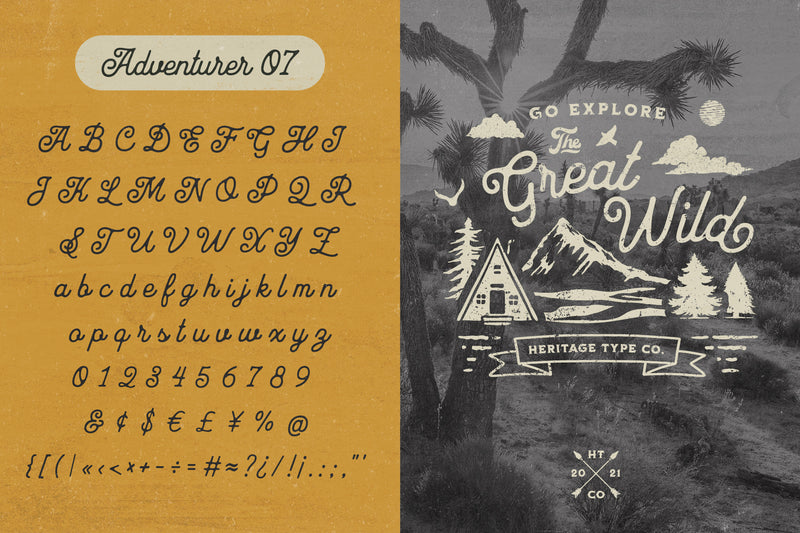 Adventurer 07
A B C D E F G H I
J K L M N O P Q R
S T U V W X Y Z
a b c d e f g h i j k l m n
o p q r s t u v w x y z
0 1 2 3 4 5 6 7 8 9
& ¢ $ € £ ¥ % @
{ [ ( | « ‹ < × + - ÷ = # ≈ ? ¿ / ! ¡ . : ; , " '
GO EXPLORE
The
Great
Wild
HERITAGE TYPE CO.
HT
20 21
CO